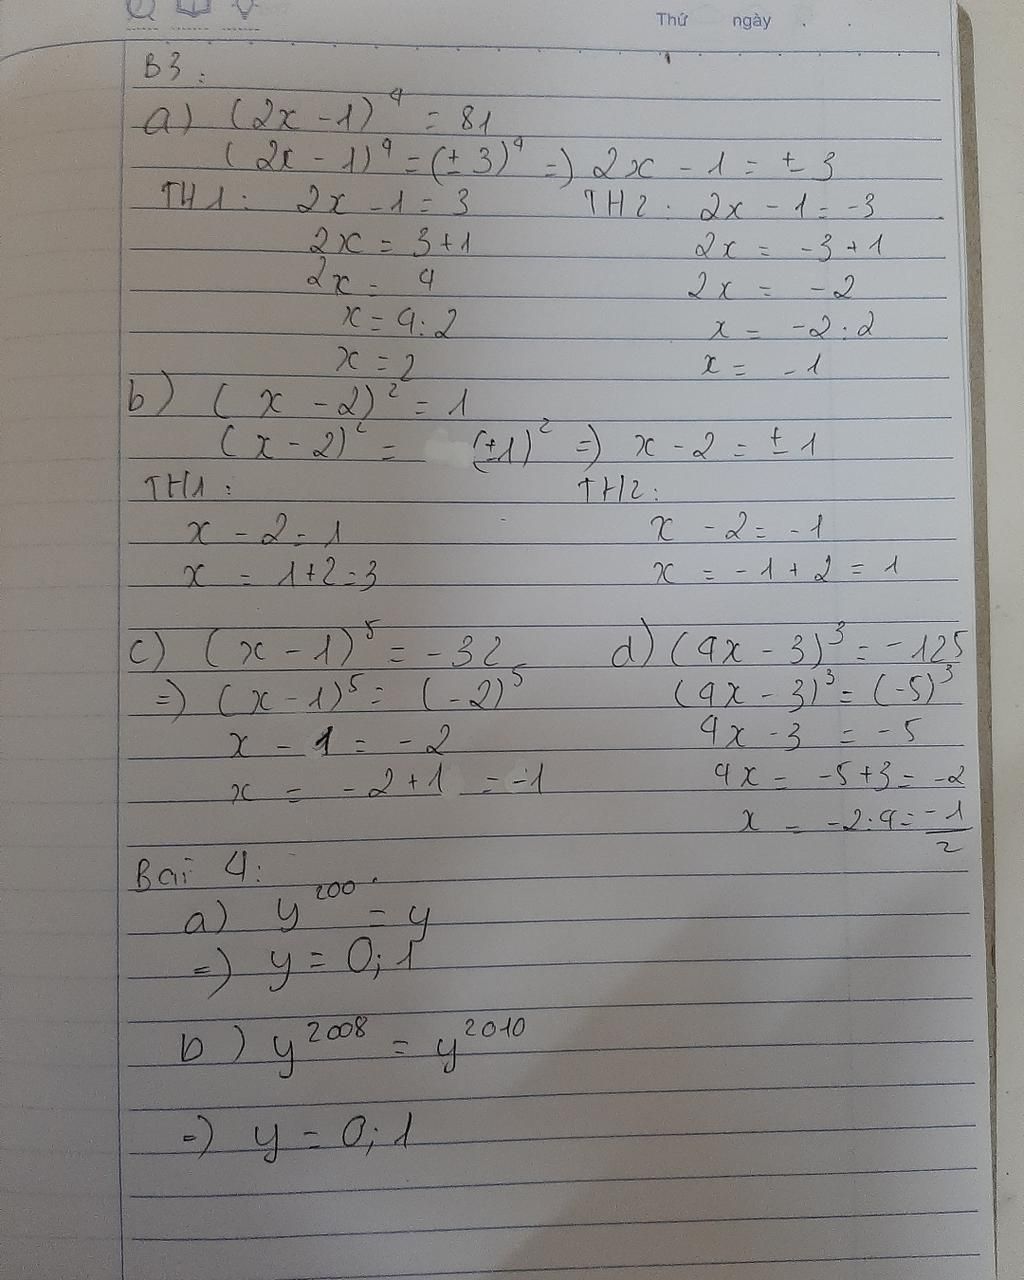 Thứ ngày . .
B3:
a) (2x - 1)⁴ = 81
(2x - 1)⁴ = (± 3)⁴ => 2x - 1 = ± 3
TH1: 2x - 1 = 3 TH2: 2x - 1 = -3
2x = 3 + 1 2x = -3 + 1
2x = 4 2x = -2
x = 4 : 2 x = -2 : 2
x = 2 x = -1
b) (x - 2)² = 1
(x - 2)² = (±1)² => x - 2 = ± 1
TH1: TH2:
x - 2 = 1 x - 2 = -1
x = 1 + 2 = 3 x = -1 + 2 = 1
c) (x - 1)⁵ = -32 d) (4x - 3)³ = -125
=> (x - 1)⁵ = (-2)⁵ (4x - 3)³ = (-5)³
x - 1 = -2 4x - 3 = -5
x = -2 + 1 = -1 4x = -5 + 3 = -2
x = -2 : 4 = -1/2
Bài 4:
a) y²⁰⁰ = y
=> y = 0; 1
b) y²⁰⁰⁸ = y²⁰¹⁰
=> y = 0; 1